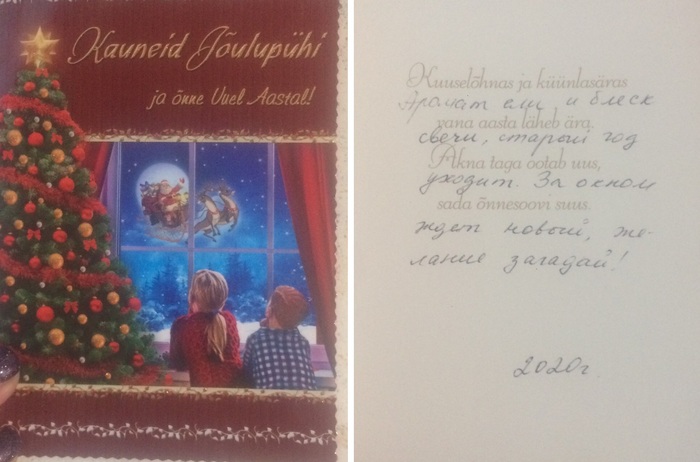 Kauneid Jõulupühi
ja õnne Uuel Aastal!
Kuuselõhnas ja küünlasäras
Аромат ели и блеск
vana aasta läheb ära.
свечи, старый год
Akna taga ootab uus,
уходит. За окном
sada õnnesoovi suus.
ждет новый, же-
лание загадай!
2020г.